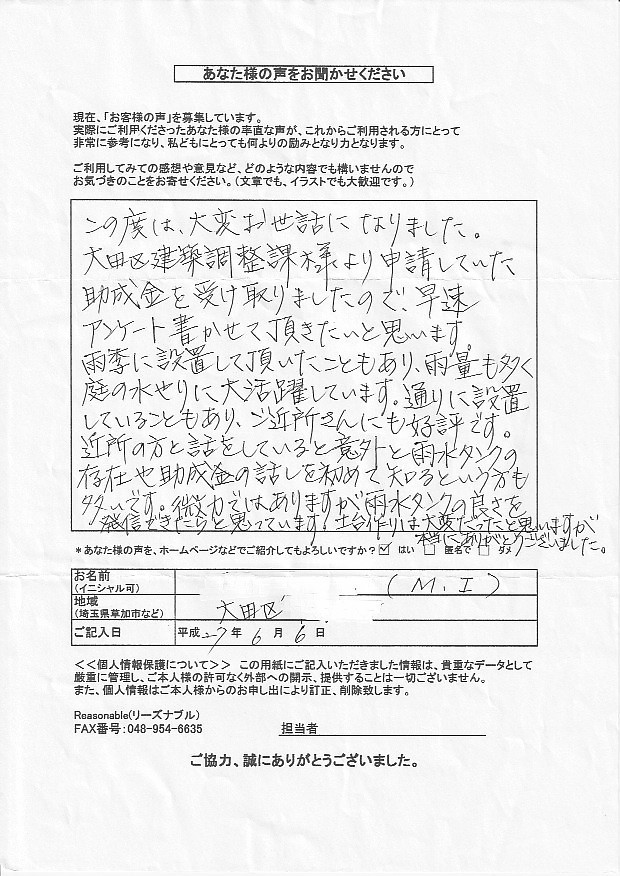 あなた様の声をお聞かせください
現在、「お客様の声」を募集しています。
実際にご利用くださったあなた様の率直な声が、これからご利用される方にとって
非常に参考になり、私どもにとっても何よりの励みとなり力となります。
ご利用してみての感想や意見など、どのような内容でも構いませんので
お気づきのことをお寄せください。（文章でも、イラストでも大歓迎です。）
この度は、大変お世話になりました。
大田区建築調整課様より申請していた
助成金を受け取りましたので、早速
アンケート書かせて頂きたいと思います。
雨季に設置して頂いたこともあり、雨量も多く
庭の水やりに大活躍しています。通りに設置
していることもあり、ご近所さんにも好評です。
近所の方と話をしていると意外と雨水タンクの
存在や助成金の話しを初めて知るという方も
多いです。微力ではありますが雨水タンクの良さを
発信できたらと思っています。土台作りは大変だったと思いますが
本当にありがとうございました。
＊あなた様の声を、ホームページなどでご紹介してもよろしいですか？☑ はい □ 匿名で □ ダメ
お名前
（イニシャル可） (M.I)
地域
（埼玉県草加市など） 大田区
ご記入日 平成 27 年 6 月 6 日
＜＜個人情報保護について＞＞ この用紙にご記入いただきました情報は、貴重なデータとして
厳重に管理し、ご本人様の許可なく外部への開示、提供することは一切ございません。
また、個人情報はご本人様からのお申し出により訂正、削除致します。
Reasonable(リーズナブル)
FAX番号：048-954-6635 担当者
ご協力、誠にありがとうございました。